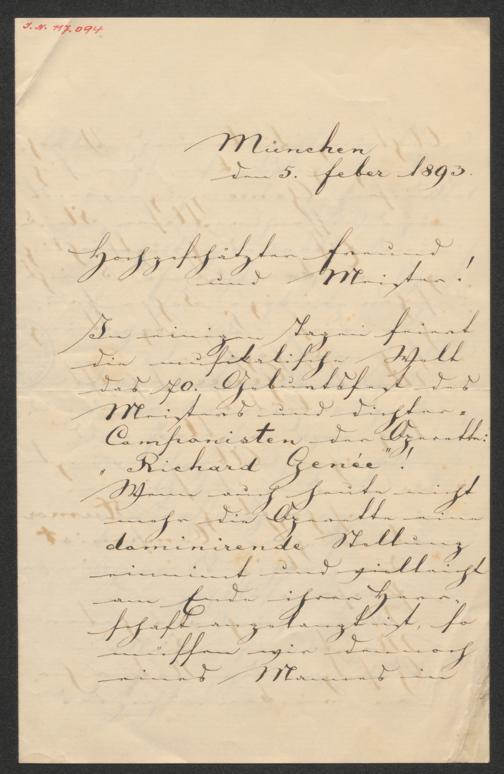 I.N. 117.094
München
den 5. feber 1893.
Hochgeschätzter Freund
und Meister!
In einigen Tagen feiert
die musikalische Welt
das 70. Geburtsfest des
Meisters und dichter-
Componisten der Operette:
"Richard Genée"!
Wenn auch heute nicht
mehr die Operette eine
dominirende Stellung
einnimt und vielleicht
am Ende ihrer Herr-
schaft angelangt ist, so
müssen wir dennoch
eines Mannes in